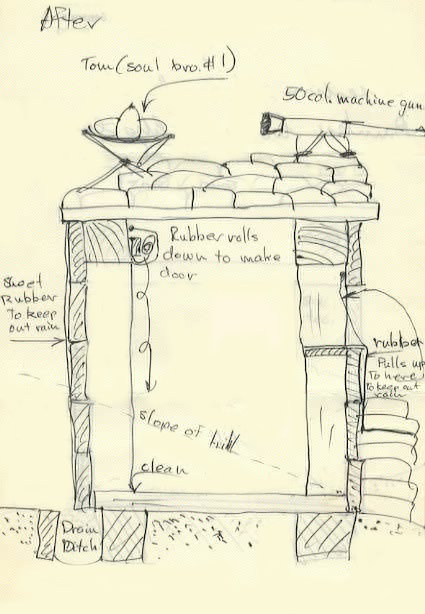 After
Tom (soul bro. #1)
50 cal. machine gun
Rubber rolls
down to make
door
Sheet
Rubber
To keep
out rain
rubber
Pulls up
To here
To keep out
rain
slope of hill
clean
Drain
Ditch